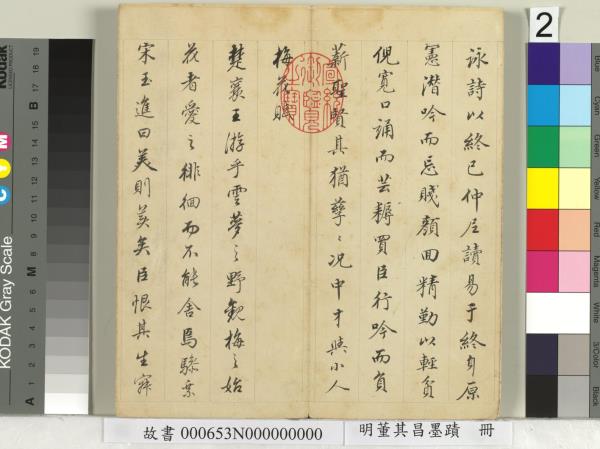 2
詠詩以終已仲尼讀易于終身原
憲潛吟而忘賤顏回精勤以輕貧
倪寬口誦而芸耨買臣行吟而負
薪聖賢其猶孳〻况中才與小人
梅花賦
楚襄王游乎雲夢之野觀梅之始
花者愛之徘徊而不能舍焉驂乘
宋玉進曰美則美矣臣恨其生寂
宣統御覽之寶
故書 000653N000000000
明董其昌墨蹟 冊
KODAK Gray Scale
Kodak
C Y M
A 1 2 3 4 5 6 M 8 9 10 11 12 13 14 15 B 17 18 19
Blue
Cyan
Green
Yellow
Red
Magenta
White
3/Color
Black